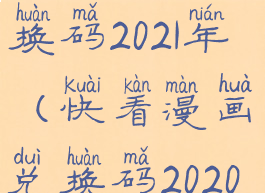 huàn mǎ nián
换码2021年
Kuài kàn màn huà
（快看漫画
duì huàn mǎ
兑换码2020